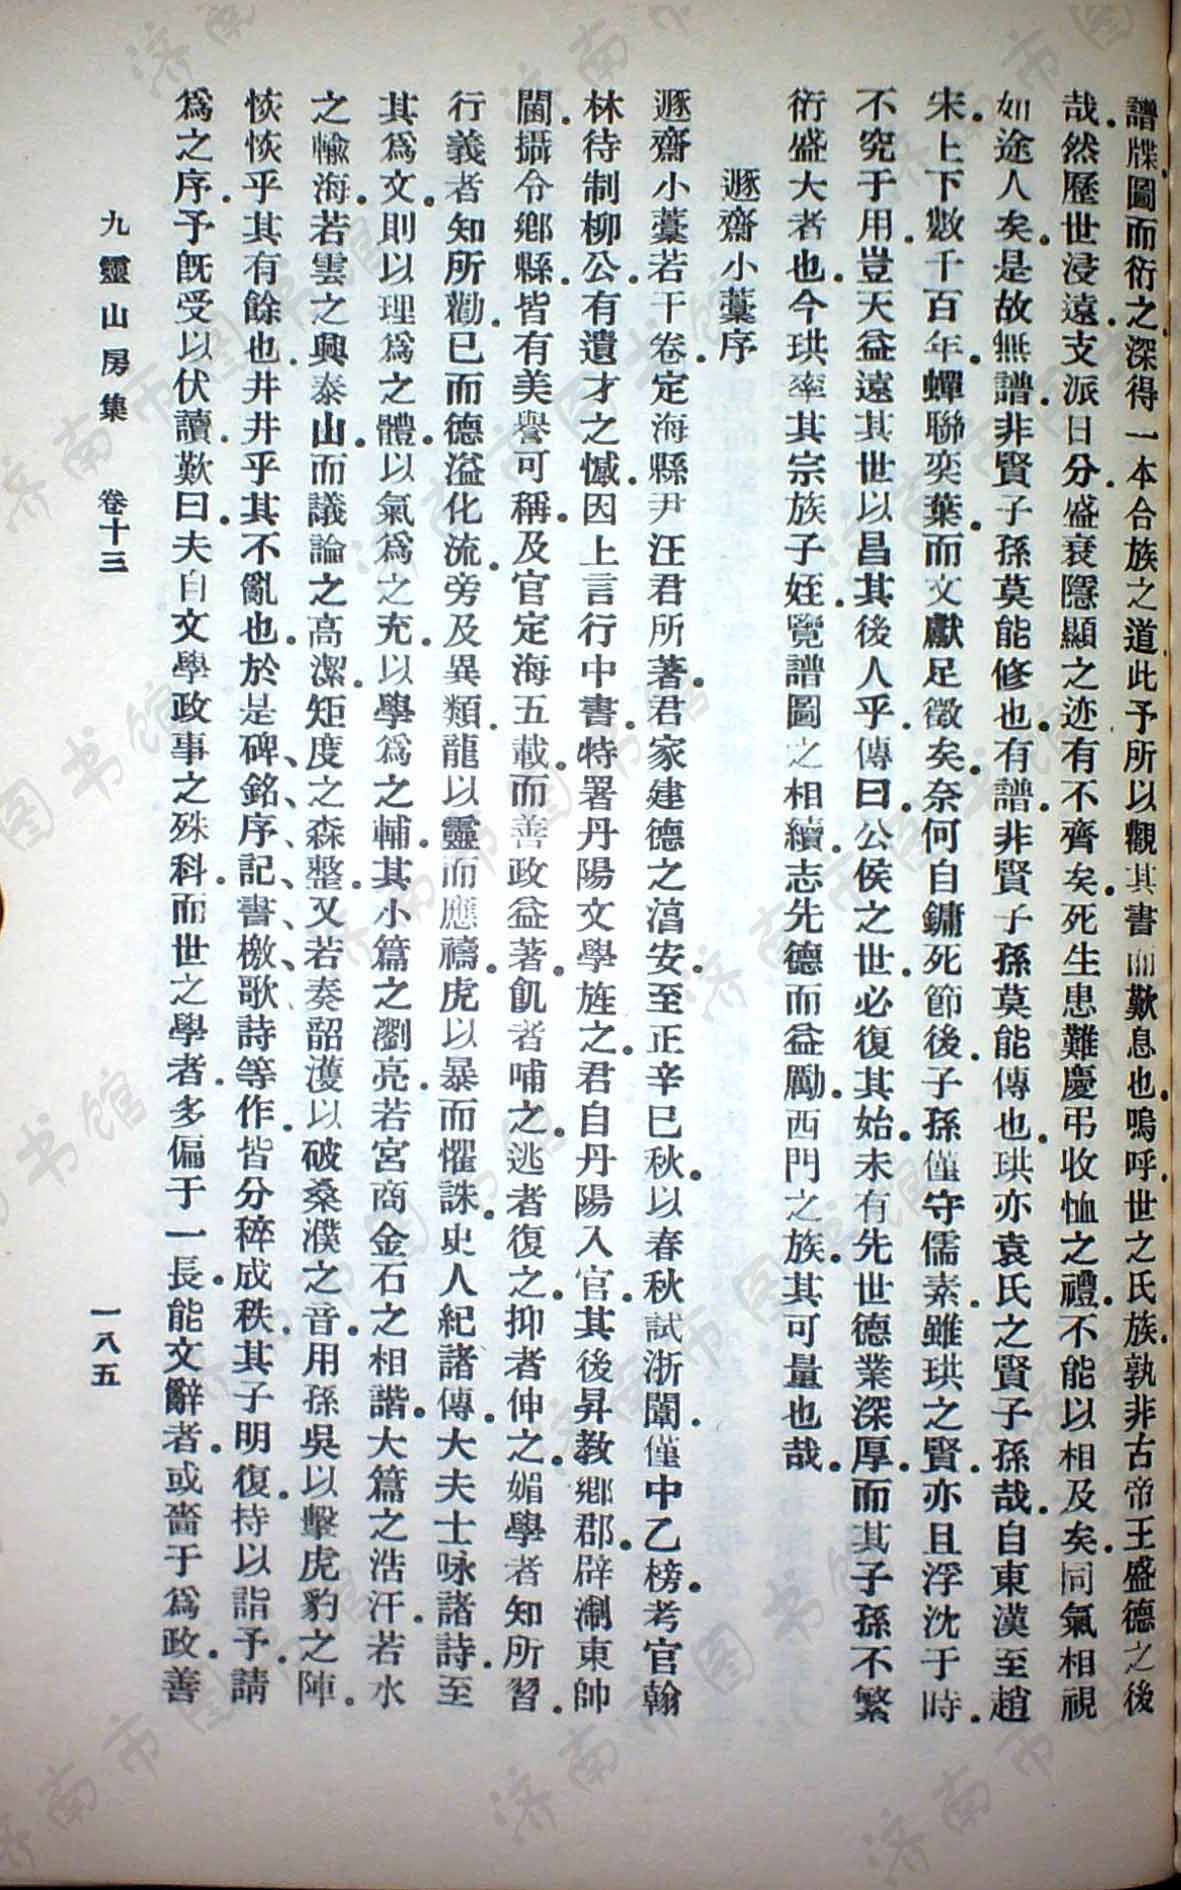 譜牒圖而衍之深得一本合族之道此予所以觀其書而歎息也嗚呼世之氏族孰非古帝王盛德之後
哉然歷世浸遠支派日分盛衰隱顯之迹有不齊矣死生患難慶弔收恤之禮不能以相及矣同氣相視
如途人矣是故無譜非賢子孫莫能修也有譜非賢子孫莫能傳也珙亦袁氏之賢子孫哉自東漢至趙
宋上下數千百年蟬聯奕葉而文獻足徵矣奈何自鏞死節後子孫僅守儒素雖珙之賢亦且浮沈于時
不究于用豈天益遠其世以昌其後人乎傳曰公侯之世必復其始未有先世德業深厚而其子孫不繁
衍盛大者也今珙率其宗族子姪覽譜圖之相續志先德而益勵西門之族其可量也哉
遯齋小藁序
遯齋小藁若干卷定海縣尹汪君所著君家建德之淳安至正辛巳秋以春秋試浙闈僅中乙榜考官翰
林待制柳公有遺才之憾因上言行中書特署丹陽文學旌之君自丹陽入官其後昇教鄉郡辟淛東帥
閫攝令鄉縣皆有美譽可稱及官定海五載而善政益著飢者哺之逃者復之抑者伸之媚學者知所習
行義者知所勸已而德溢化流旁及異類龍以靈而應禱虎以暴而懼誅史人紀諸傳大夫士咏諸詩至
其為文則以理為之體以氣為之充以學為之輔其小篇之瀏亮若宮商金石之相諧大篇之浩汗若水
之輸海若雲之興泰山而議論之高潔矩度之森整又若奏韶濩以破桑濮之音用孫吳以擊虎豹之陣
恢恢乎其有餘也井井乎其不亂也於是碑、銘、序記、書檄、歌詩等作皆分稡成秩其子明復持以詣予請
為之序予既受以伏讀歎曰夫自文學政事之殊科而世之學者多偏于一長能文辭者或嗇于為政善
九靈山房集 卷十三 一八五
济南市图书馆